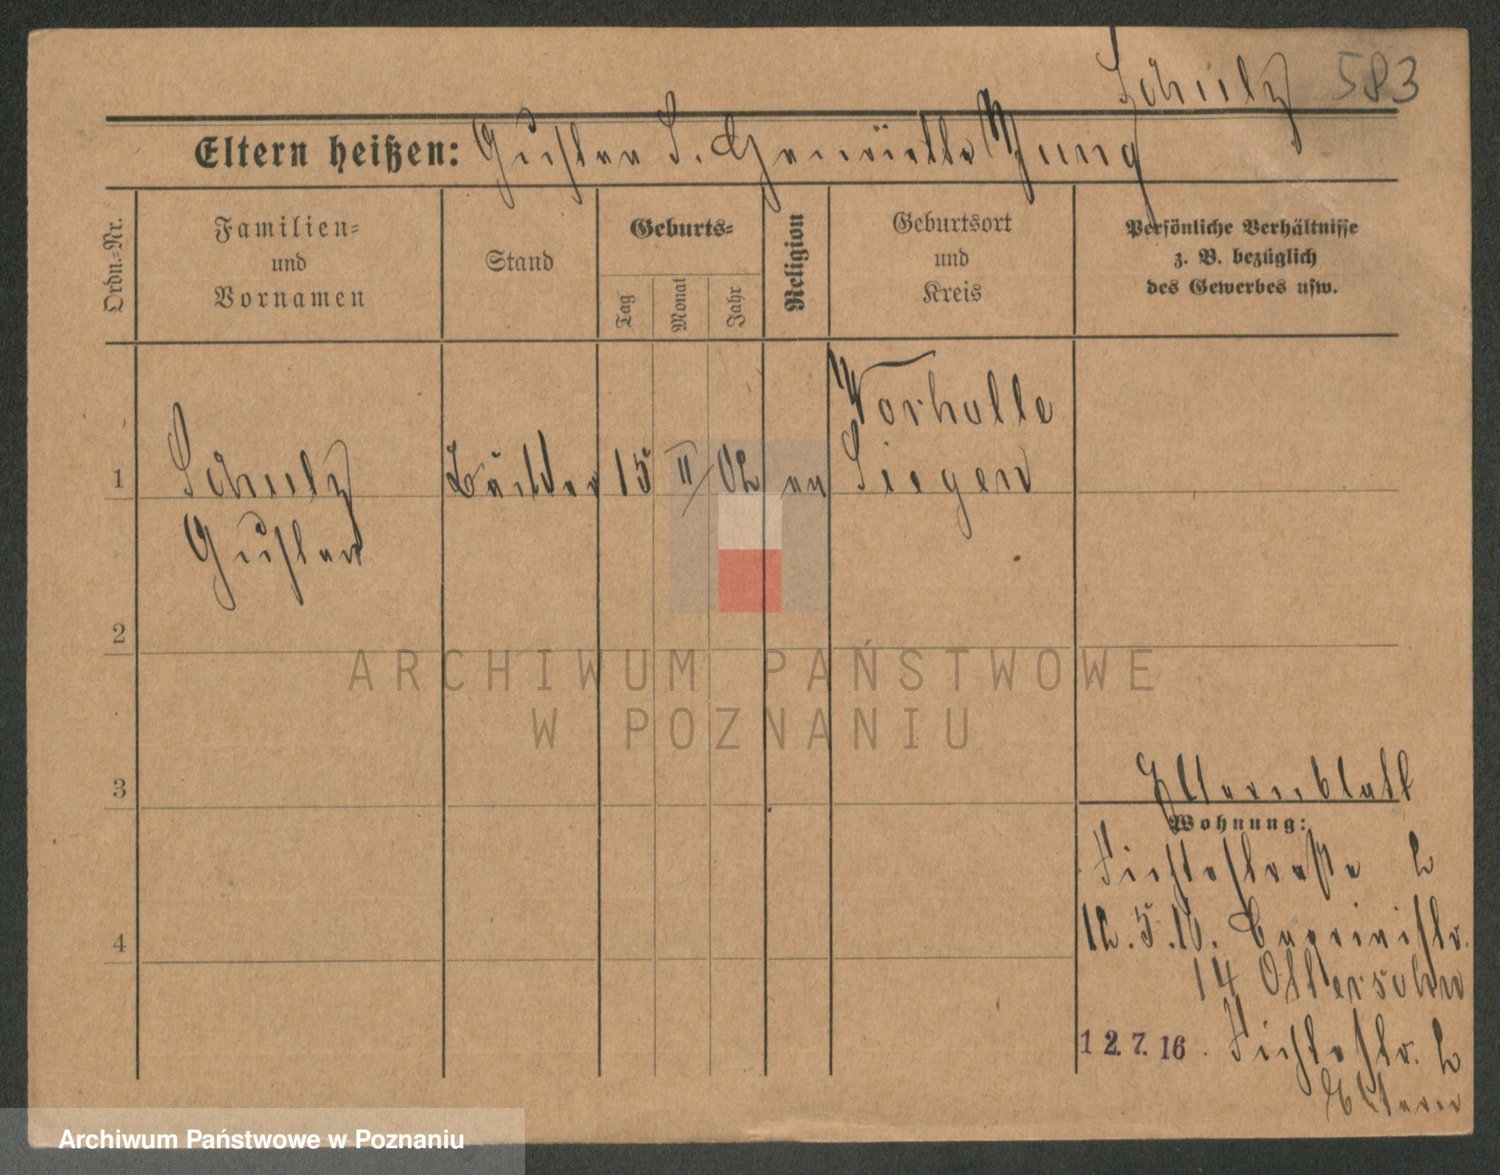 Schulz 583
Eltern heißen: Gustav S. Henriette Jung
Ordn.=Nr.
Familien=
und
Vornamen
Stand
Geburts=
Tag
Monat
Jahr
Religion
Geburtsort
und
Kreis
Persönliche Verhältnisse
z. B. bezüglich
des Gewerbes usw.
1
Schulz
Gustav
15 II 02 ev
Vorhalle
Siegen
2
3
4
Elternblatt
Wohnung:
Fichtestraße 2
12.5.16.
14
12.7.16. Fichtestr. 2
Eltern
ARCHIWUM PAŃSTWOWE
W POZNANIU
Archiwum Państwowe w Poznaniu